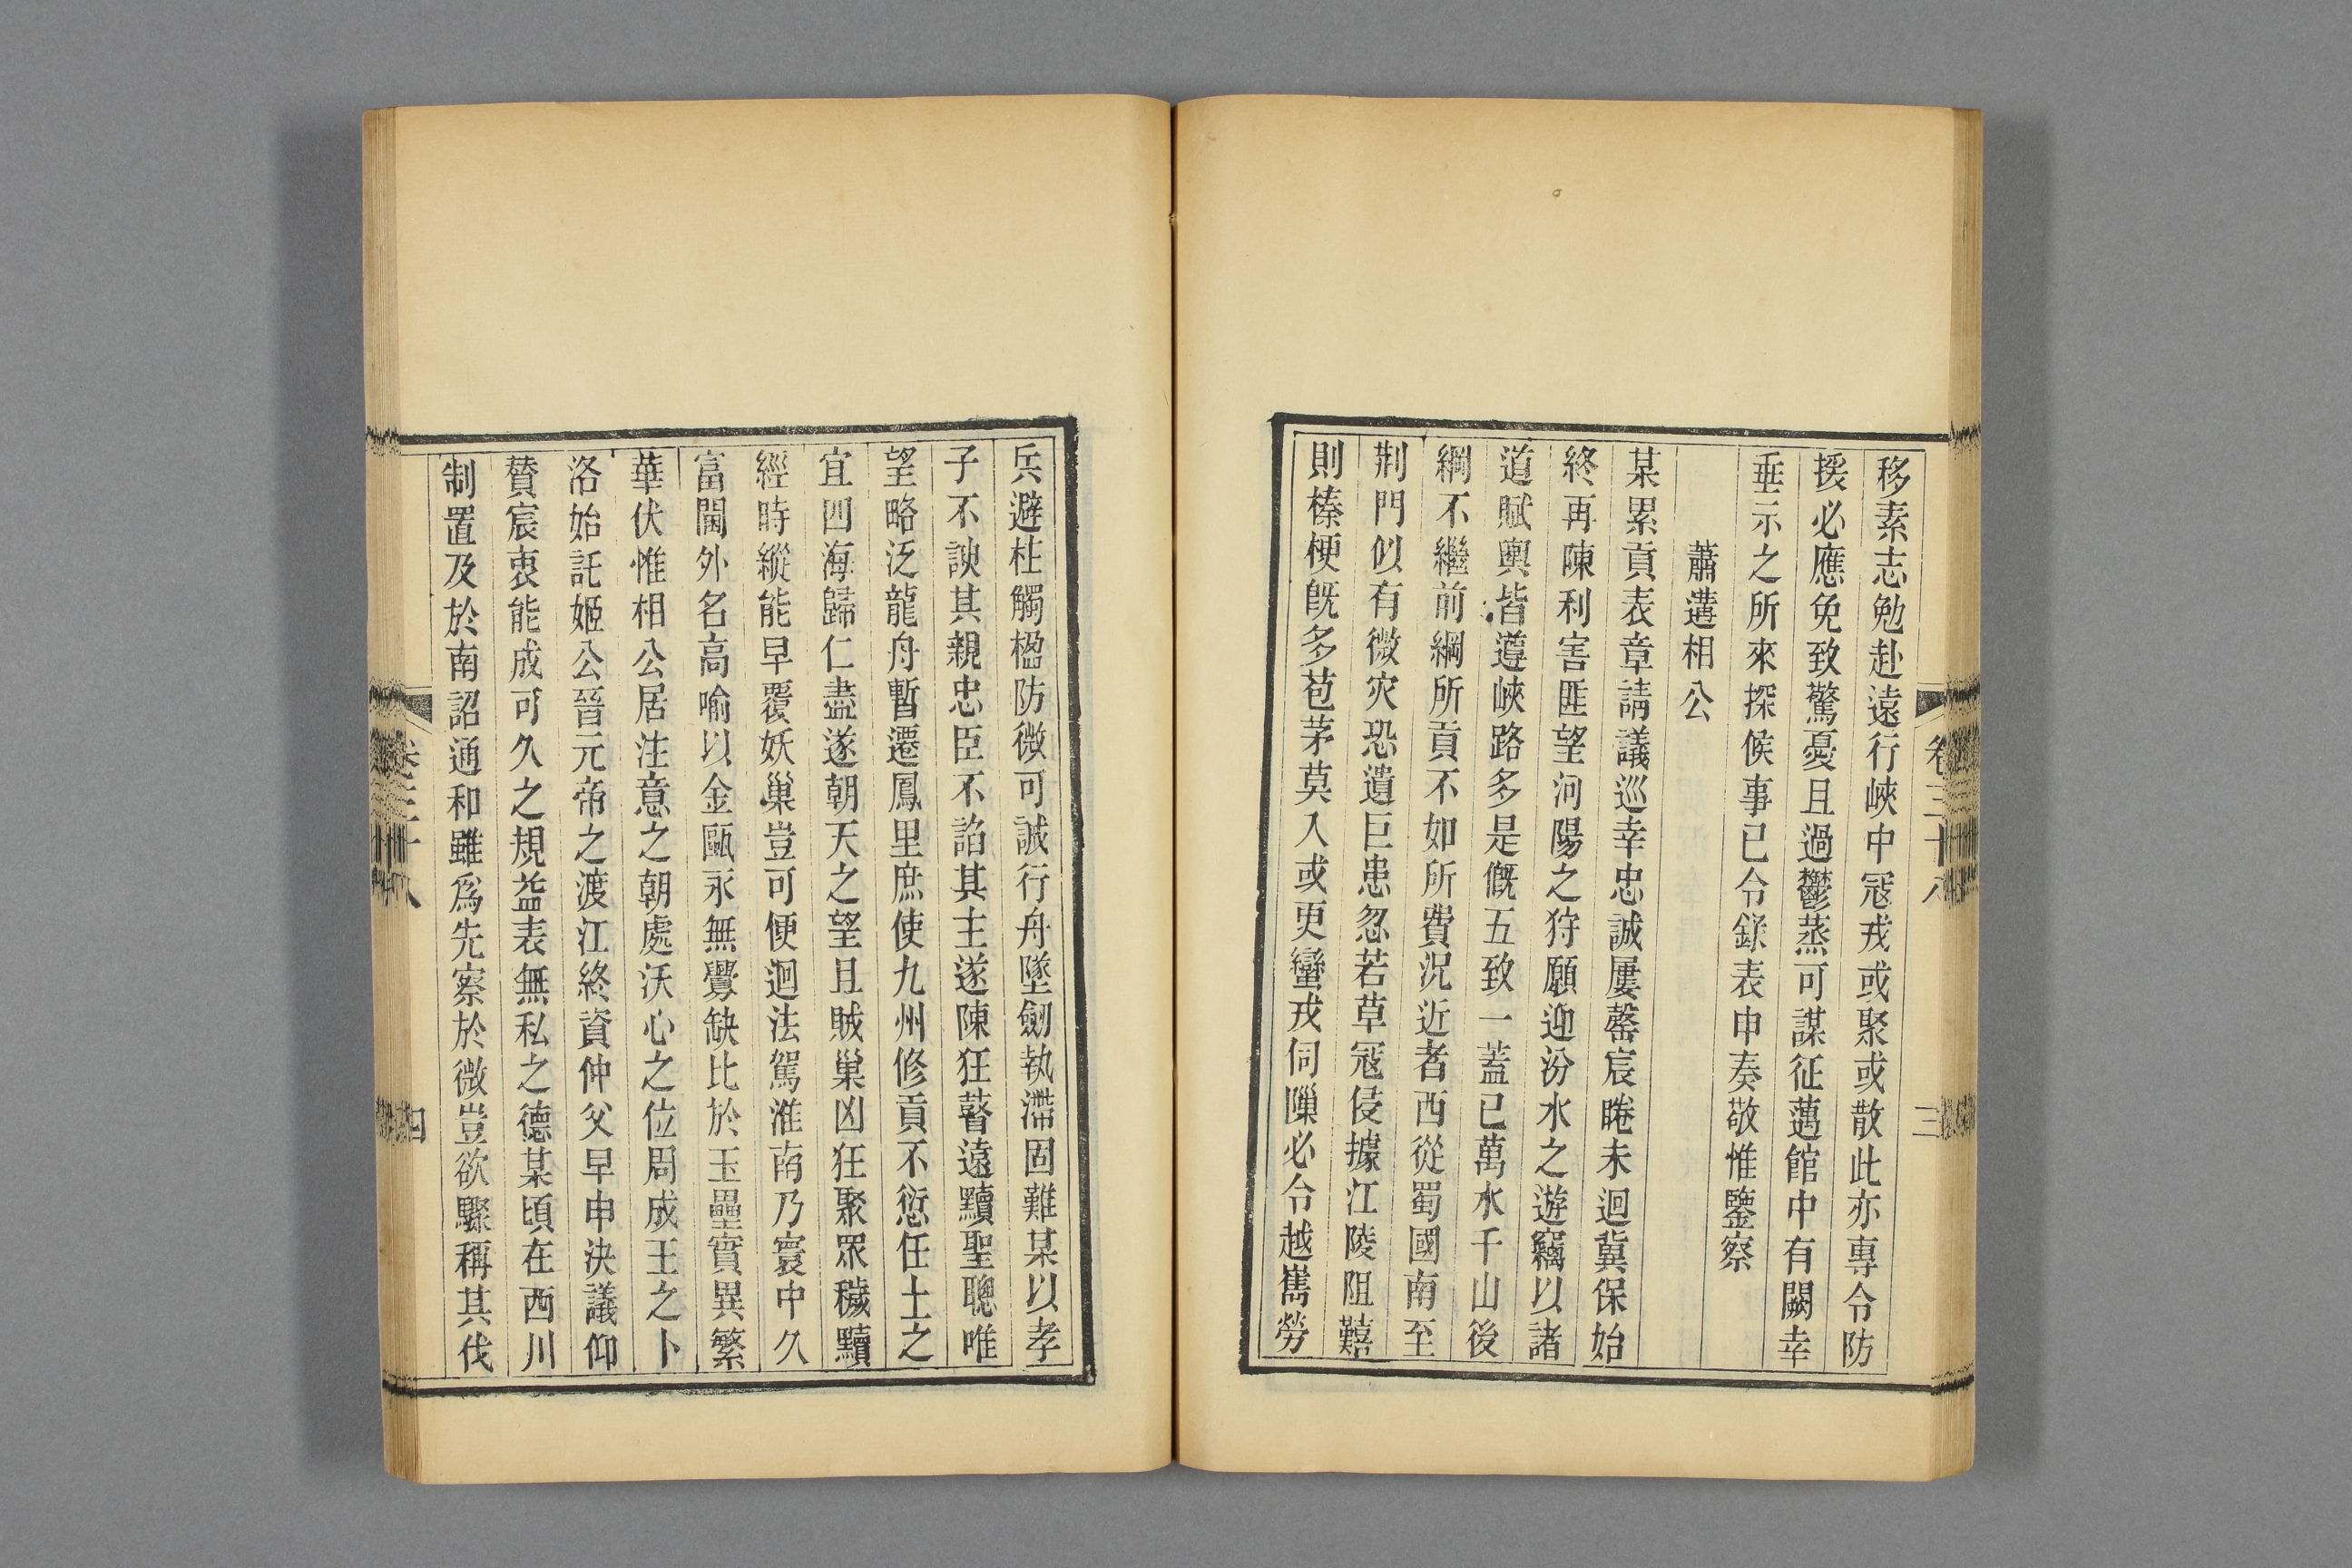 移素志勉赴遠行峽中冦戎或聚或散此亦專令防
援必應免致驚憂且過鬱蒸可謀征邁館中有闕幸
垂示之所來探候事已令錄表申奏敬惟鑒察
蕭遘相公
某累貢表章請議巡幸忠誠屢罄宸睠未迴冀保始
終再陳利害匪望河陽之狩願迎汾水之遊竊以諸
道賦輿皆遵峽路多是僦五致一蓋已萬水千山後
綱不繼前綱所貢不如所費況近者西從蜀國南至
荆門似有微灾恐遺巨患忽若草冦侵據江陵阻囏
則榛梗旣多苞茅莫入或更蠻戎伺隟必令越嶲勞
兵避柱觸楹防微可誠行舟墜劒執滯固難某以孝
子不諛其親忠臣不諂其主遂陳狂瞽遠黷聖聰唯
望略泛龍舟暫遷鳳里庶使九州修貢不愆任土之
宜四海歸仁盡遂朝天之望且賊巢凶狂聚眾穢黷
經時縱能早覆妖巢豈可便迴法駕淮南乃寰中久
富閫外名高喻以金甌永無釁缺比於玉壘實異繁
華伏惟相公居注意之朝處沃心之位周成王之卜
洛始託姬公晉元帝之渡江終資仲父早申決議仰
贊宸衷能成可久之規益表無私之德某頃在西川
制置及於南詔通和雖爲先察於微豈欲驟稱其伐
卷三十八
三
卷三十八
四